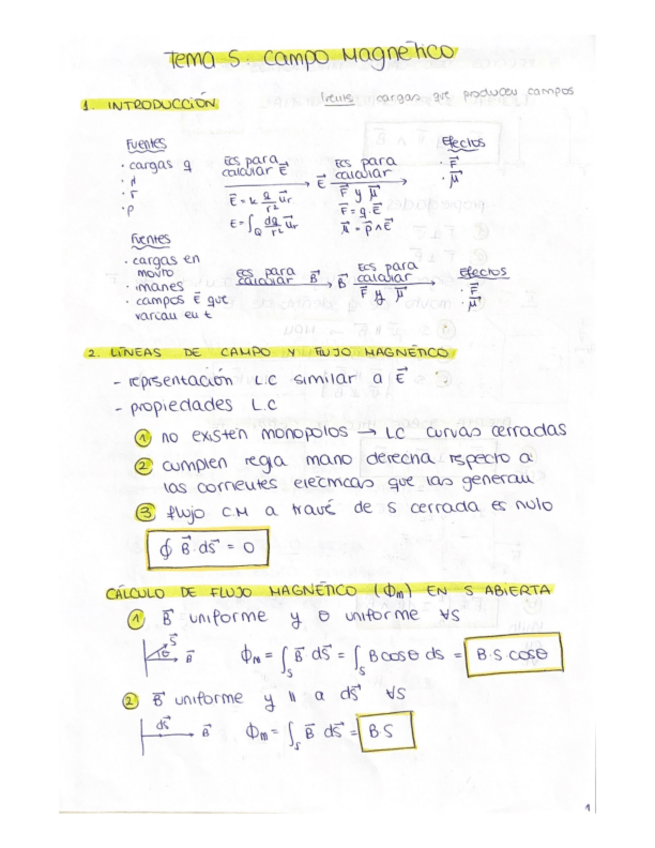 Tema 5: Campo Magnético
1. INTRODUCCIÓN
fuente cargas que producen campos
Fuentes
· cargas q
· λ
· σ
· ρ
Ecs para calcular E⃗
E⃗ = k q/r² u⃗r
E = ∫Q dq/r² u⃗r
E⃗
Ecs para calcular F⃗ y μ⃗
F⃗ = q·E⃗
μ⃗ = p⃗ ∧ E⃗
Efectos
· F⃗
· μ⃗
Fuentes
· cargas en
movto
· imanes
· campos E⃗ que
varían en t
Ecs para calcular B⃗
B⃗
Ecs para calcular F⃗ y μ⃗
Efectos
· F⃗
· μ⃗
2. LÍNEAS DE CAMPO Y FLUJO MAGNÉTICO
- reprsentación L.C similar a E⃗
- propiedades L.C
1 no existen monopolos → LC curvas cerradas
2 cumplen regla mano derecha respecto a
las corrientes eléctricas que las generan
3 flujo C.M a través de S cerrada es nulo
∮ B⃗·dS⃗ = 0
CÁLCULO DE FLUJO MAGNÉTICO (Φm) EN S ABIERTA
1 B⃗ uniforme y θ uniforme ∀S
S⃗ θ B⃗
Φm = ∫S B⃗ dS⃗ = ∫S B cosθ ds = B·S·cosθ
2 B⃗ uniforme y || a dS⃗ ∀S
dS⃗ B⃗
Φm = ∫S B⃗ dS⃗ = B·S
1